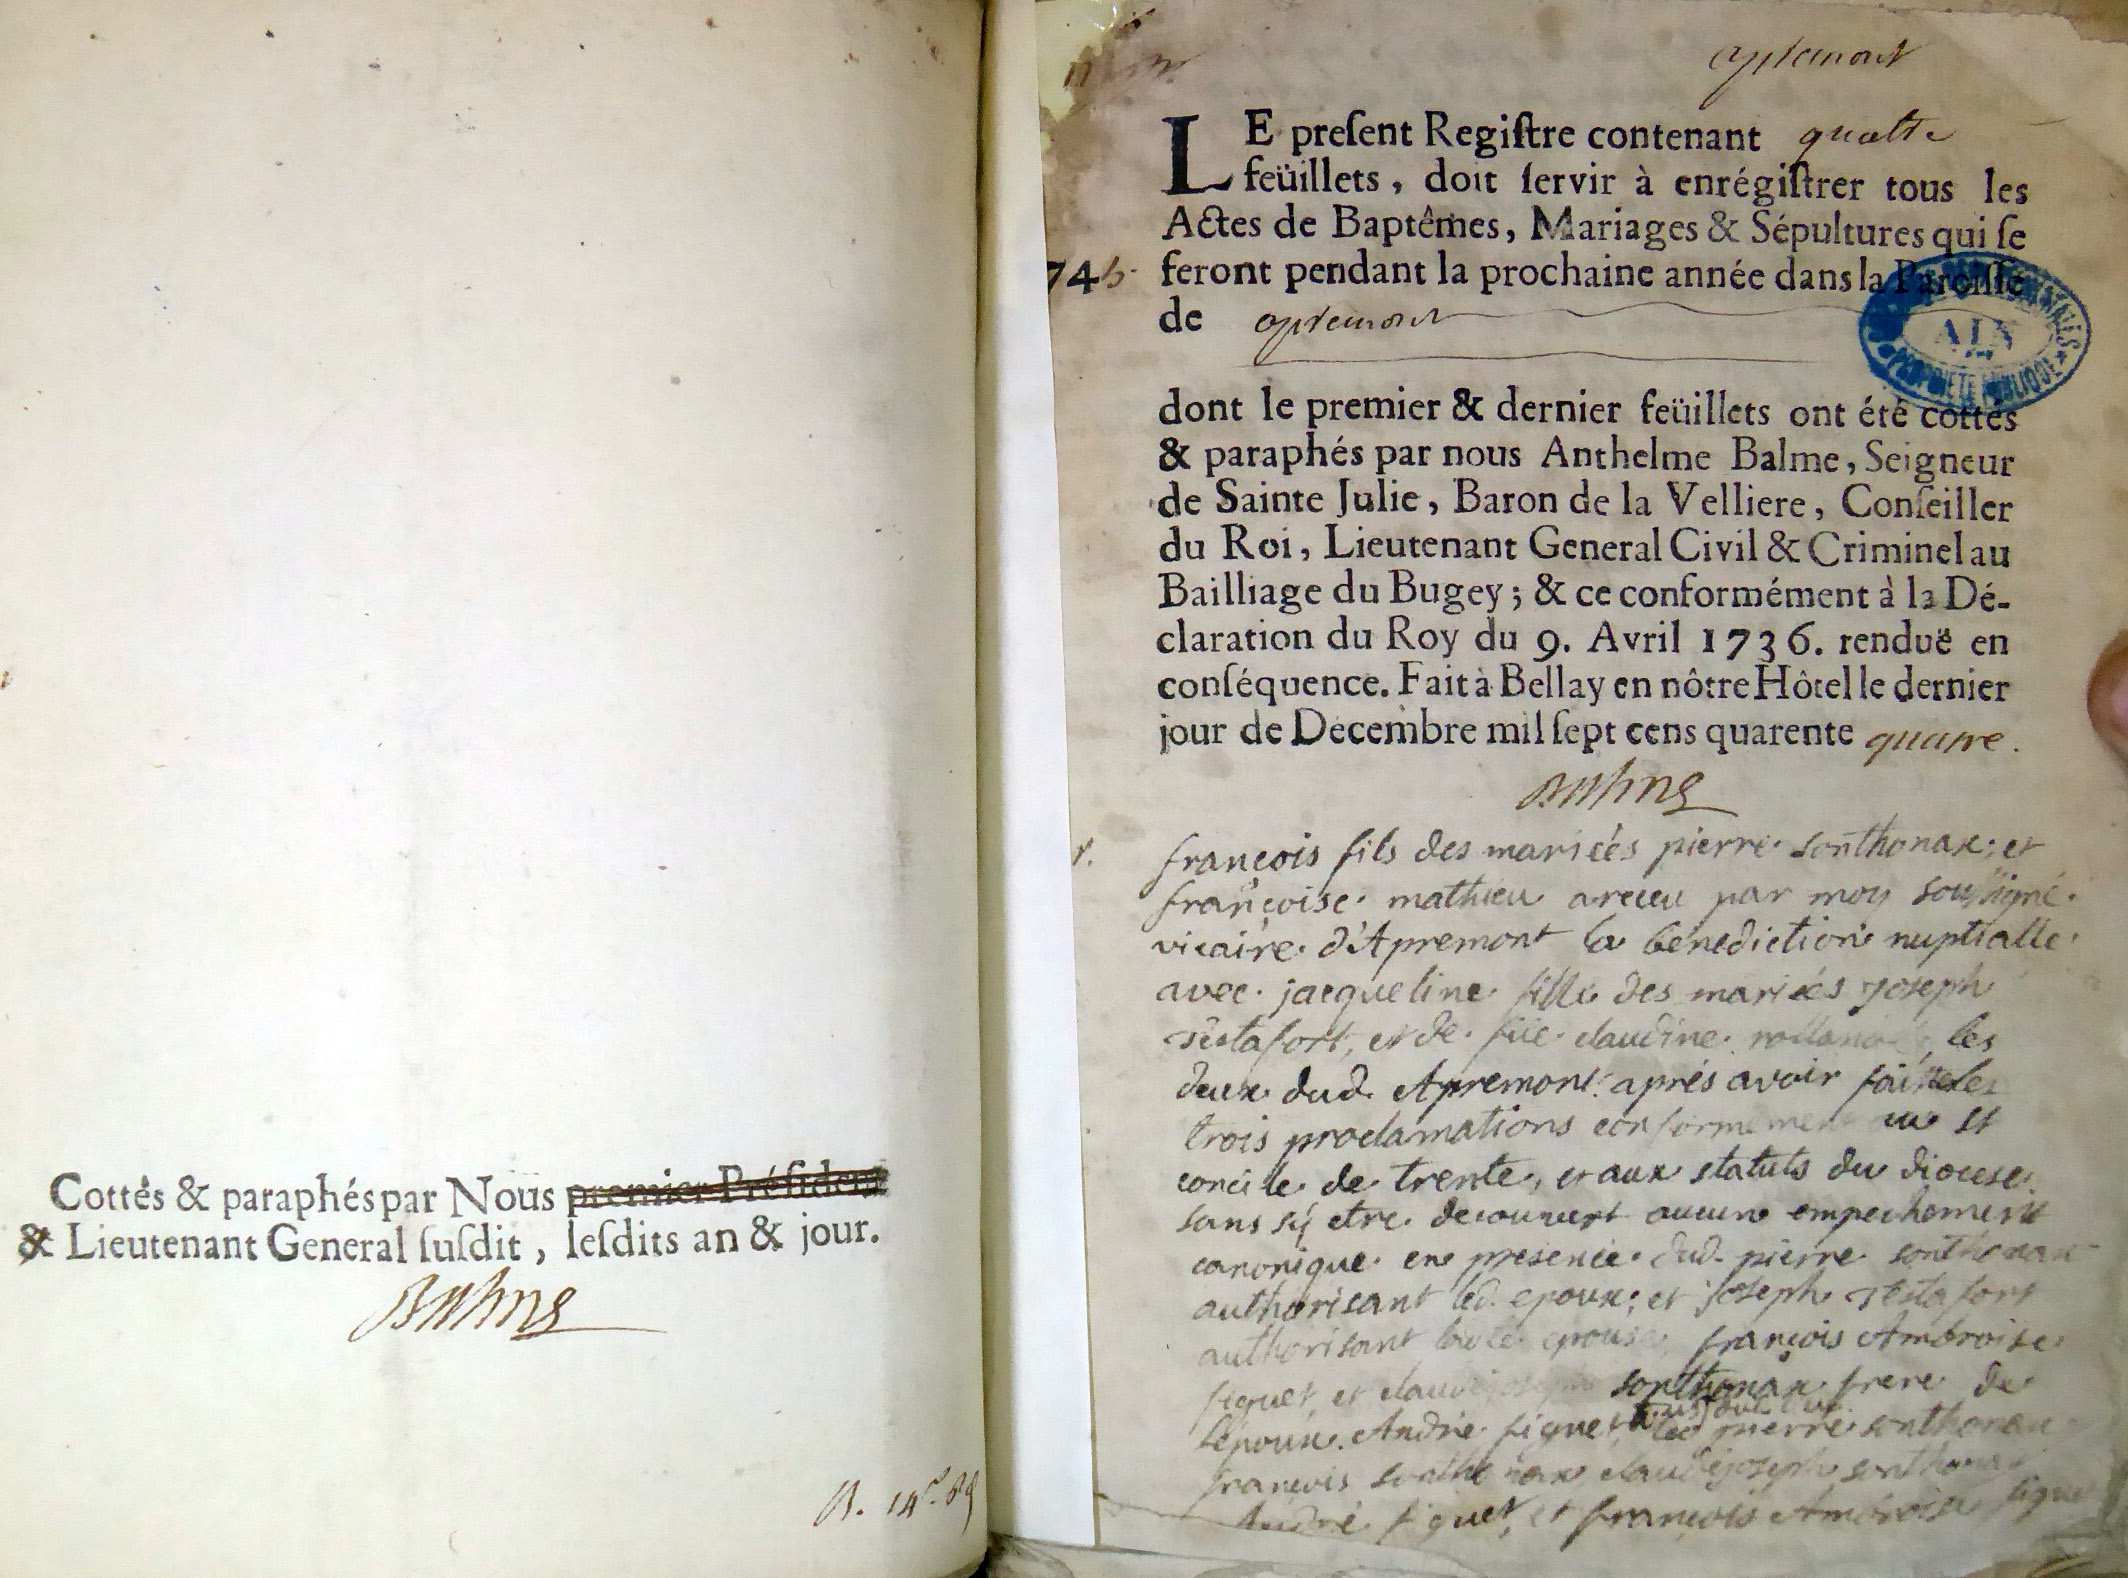 Cottés & paraphés par Nous premier Président
& Lieutenant General ſuſdit, leſdits an & jour.
Balme
apremont
LE preſent Regiſtre contenant quatre
feüillets, doit ſervir à enrégiſtrer tous les
Actes de Baptêmes, Mariages & Sépultures qui ſe
745
feront pendant la prochaine année dans la Paroiſſe
de apremont
AIN
PROPRIÉTÉ PUBLIQUE
dont le premier & dernier feüillets ont été cottés
& paraphés par nous Anthelme Balme, Seigneur
de Sainte Julie, Baron de la Velliere, Conſeiller
du Roi, Lieutenant General Civil & Criminel au
Bailliage du Bugey; & ce conformément à la Dé-
claration du Roy du 9. Avril 1736. renduë en
conſéquence. Fait à Bellay en nôtre Hôtel le dernier
jour de Decembre mil ſept cens quarente quatre.
Balme
françois fils des mariées pierre sonthonax; et
françoise mathieu a receu par moy soussigné
vicaire d'Apremont la benediction nuptialle
avec jacqueline fille des mariés Joseph
Testafort, et de claudine les
deux dud. Apremont après avoir fait les
trois proclamations conformement au st
concile de trente, et aux statuts du diocese
sans sÿ etre decouvert aucun empechement
canonique en presence dud. pierre sonthonax
authorisant led. epoux; et joseph Testafort
authorisant ladte epouse, françois Ambroise
figuet, et claude joseph sonthonax frere de
lépoux. André figuet led pierre sonthonax
françois sonthonax claude joseph sonthonax
André figuet, et françois Ambroise figuet